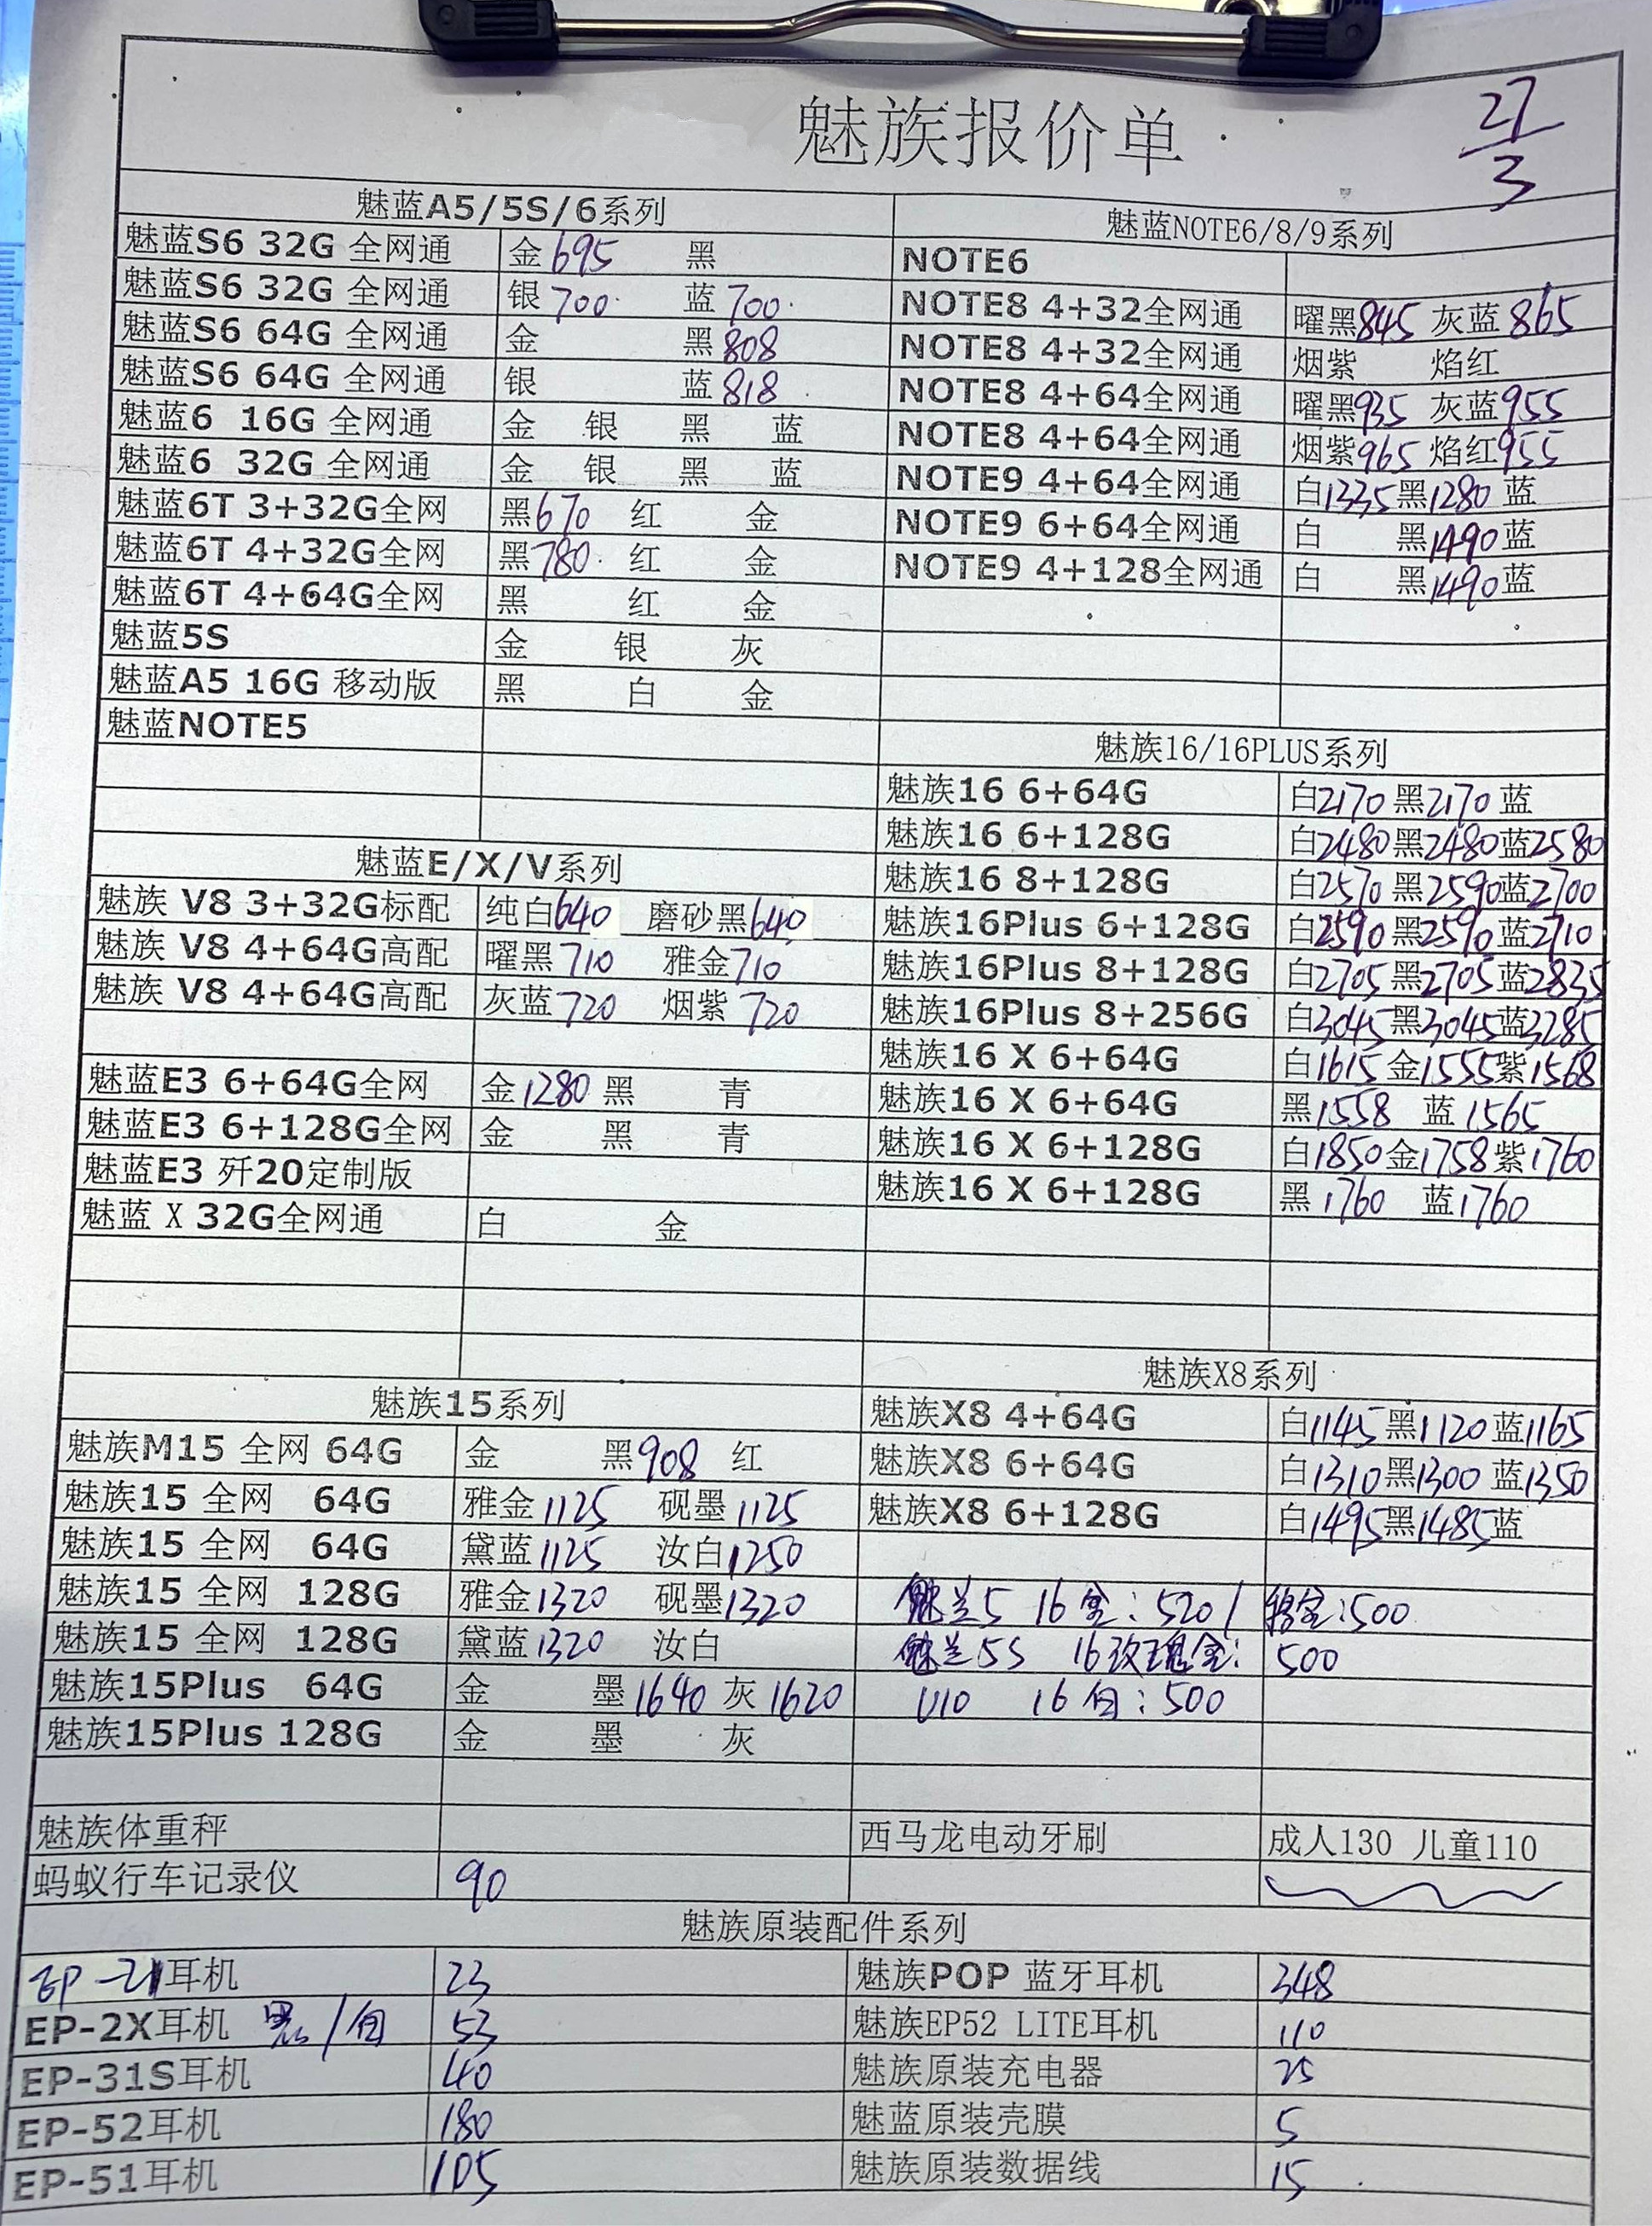 魅族报价单
27/3
魅蓝A5/5S/6系列
魅蓝S6 32G 全网通 金695 黑
魅蓝S6 32G 全网通 银700 蓝700
魅蓝S6 64G 全网通 金 黑808
魅蓝S6 64G 全网通 银 蓝818
魅蓝6 16G 全网通 金 银 黑 蓝
魅蓝6 32G 全网通 金 银 黑 蓝
魅蓝6T 3+32G全网 黑670 红 金
魅蓝6T 4+32G全网 黑780 红 金
魅蓝6T 4+64G全网 黑 红 金
魅蓝5S 金 银 灰
魅蓝A5 16G 移动版 黑 白 金
魅蓝NOTE5
魅蓝NOTE6/8/9系列
NOTE6
NOTE8 4+32全网通 曜黑845 灰蓝865
NOTE8 4+32全网通 烟紫 焰红
NOTE8 4+64全网通 曜黑935 灰蓝955
NOTE8 4+64全网通 烟紫965 焰红955
NOTE9 4+64全网通 白1335 黑1280 蓝
NOTE9 6+64全网通 白 黑1490 蓝
NOTE9 4+128全网通 白 黑1490 蓝
魅族16/16PLUS系列
魅族16 6+64G 白2170 黑2170 蓝
魅族16 6+128G 白2480 黑2480 蓝2580
魅族16 8+128G 白2570 黑2590 蓝2700
魅族16Plus 6+128G 白2590 黑2590 蓝2710
魅族16Plus 8+128G 白2705 黑2705 蓝2835
魅族16Plus 8+256G 白3045 黑3045 蓝3285
魅族16 X 6+64G 白1615 金1555 紫1568
魅族16 X 6+64G 黑1558 蓝1565
魅族16 X 6+128G 白1850 金1758 紫1760
魅族16 X 6+128G 黑1760 蓝1760
魅蓝E/X/V系列
魅族 V8 3+32G标配 纯白640 磨砂黑640
魅族 V8 4+64G高配 曜黑710 雅金710
魅族 V8 4+64G高配 灰蓝720 烟紫720
魅蓝E3 6+64G全网 金1280 黑 青
魅蓝E3 6+128G全网 金 黑 青
魅蓝E3 歼20定制版
魅蓝 X 32G全网通 白 金
魅族15系列
魅族M15 全网 64G 金 黑908 红
魅族15 全网 64G 雅金1125 砚墨1125
魅族15 全网 64G 黛蓝1125 汝白1250
魅族15 全网 128G 雅金1320 砚墨1320
魅族15 全网 128G 黛蓝1320 汝白
魅族15Plus 64G 金 墨1640 灰1620
魅族15Plus 128G 金 墨 灰
魅族X8系列
魅族X8 4+64G 白1145 黑1120 蓝1165
魅族X8 6+64G 白1310 黑1300 蓝1350
魅族X8 6+128G 白1495 黑1485 蓝
魅兰5 16金:520/ 金:500
魅兰5S 16玫瑰金: 500
U10 16白:500
魅族体重秤 西马龙电动牙刷 成人130 儿童110
蚂蚁行车记录仪 90
魅族原装配件系列
EP-21耳机 23 魅族POP 蓝牙耳机 348
EP-2X耳机 黑/白 53 魅族EP52 LITE耳机 110
EP-31S耳机 40 魅族原装充电器 25
EP-52耳机 180 魅蓝原装壳膜 5
EP-51耳机 105 魅族原装数据线 15